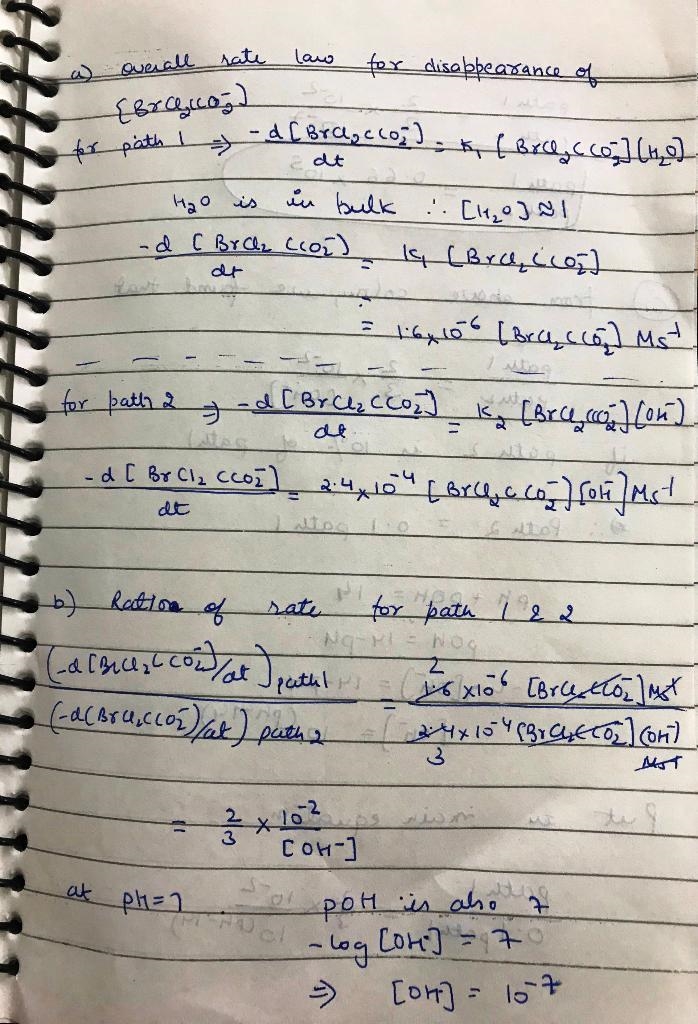 a) overall rate law for disappearance of
[BrCl₂CCO₂⁻]
for path 1 ⇒ -d[BrCl₂CCO₂⁻]/dt = K₁ [BrCl₂CCO₂⁻][H₂O]
H₂O is in bulk ∴ [H₂O] ≈ 1
-d[BrCl₂CCO₂⁻]/dt = K₁ [BrCl₂CCO₂⁻]
= 1.6 × 10⁻⁶ [BrCl₂CCO₂⁻] Ms⁻¹
for path 2 ⇒ -d[BrCl₂CCO₂⁻]/dt = K₂ [BrCl₂CCO₂⁻][OH⁻]
-d[BrCl₂CCO₂⁻]/dt = 2.4 × 10⁻⁴ [BrCl₂CCO₂⁻][OH⁻] Ms⁻¹
b) Ration of rate for path 1 & 2
(-d[BrCl₂CCO₂⁻]/dt) path 1 / (-d[BrCl₂CCO₂⁻]/dt) path 2 = 2 1.6 × 10⁻⁶ [BrCl₂CCO₂⁻] Ms⁻¹ / 2.4 × 10⁻⁴ [BrCl₂CCO₂⁻][OH⁻] Ms⁻¹ 3
= 2/3 × 10⁻²/[OH⁻]
at pH = 7 pOH is also 7
-log [OH⁻] = 7
⇒ [OH⁻] = 10⁻⁷